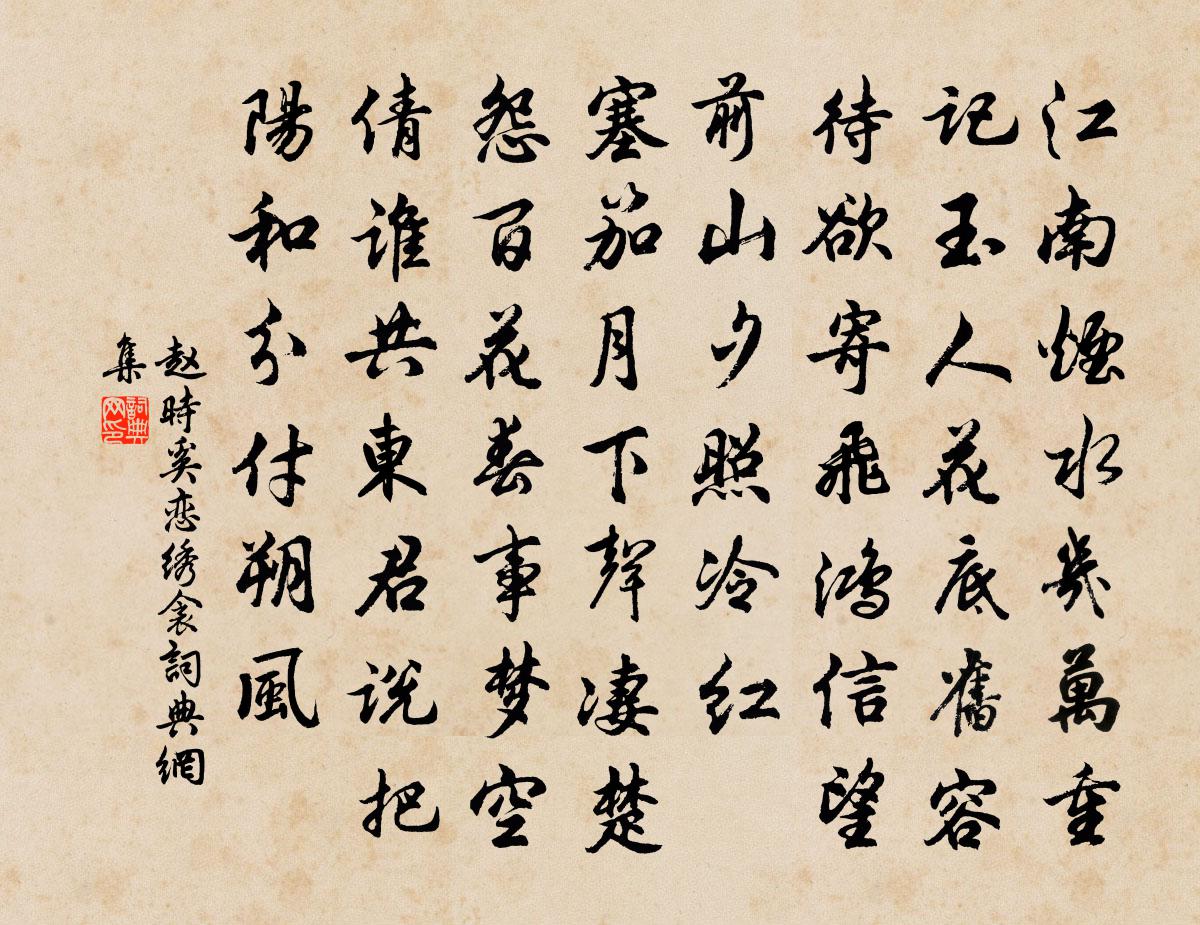 江南煙水幾萬重
記玉人花底舊容
待欲寄飛鴻信望
前山夕照冷红
塞笳月下聲凄楚
怨百花春事梦空
倩誰共東君说把
陽和分付朔風
赵時奚恋绣衾詞典網
集
詞典
网印